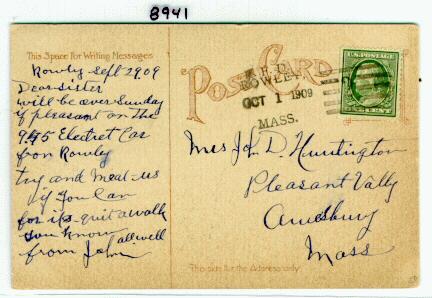 8941
This Space for Writing Messages
Rowly Sept 2909
Dear Sister
will be over Sunday
if pleasant on the
9.45 Electret Car
from Rowly
try and meat us
if You Can
for its quit a walk
you know all well
from John
POST CARD
ROWLEY
OCT 1 1909
MASS.
U.S. POSTAGE
Mrs John D. Huntington
Pleasant Vally
Amesbury
Mass
This side for the Address only